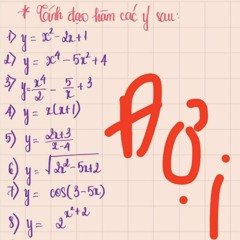 * Tính đạo hàm các y sau:
1) y = x² - 2x + 1
2) y = x⁴ - 5x² + 4
3) y = x⁴/2 - 5/x + 3
4) y = x(x+1)
5) y = (2x+3)/(x-4)
6) y = √(2x² - 5x + 2)
7) y = cos(3 - 5x)
8) y = 2^(x²+2)
A
ơi